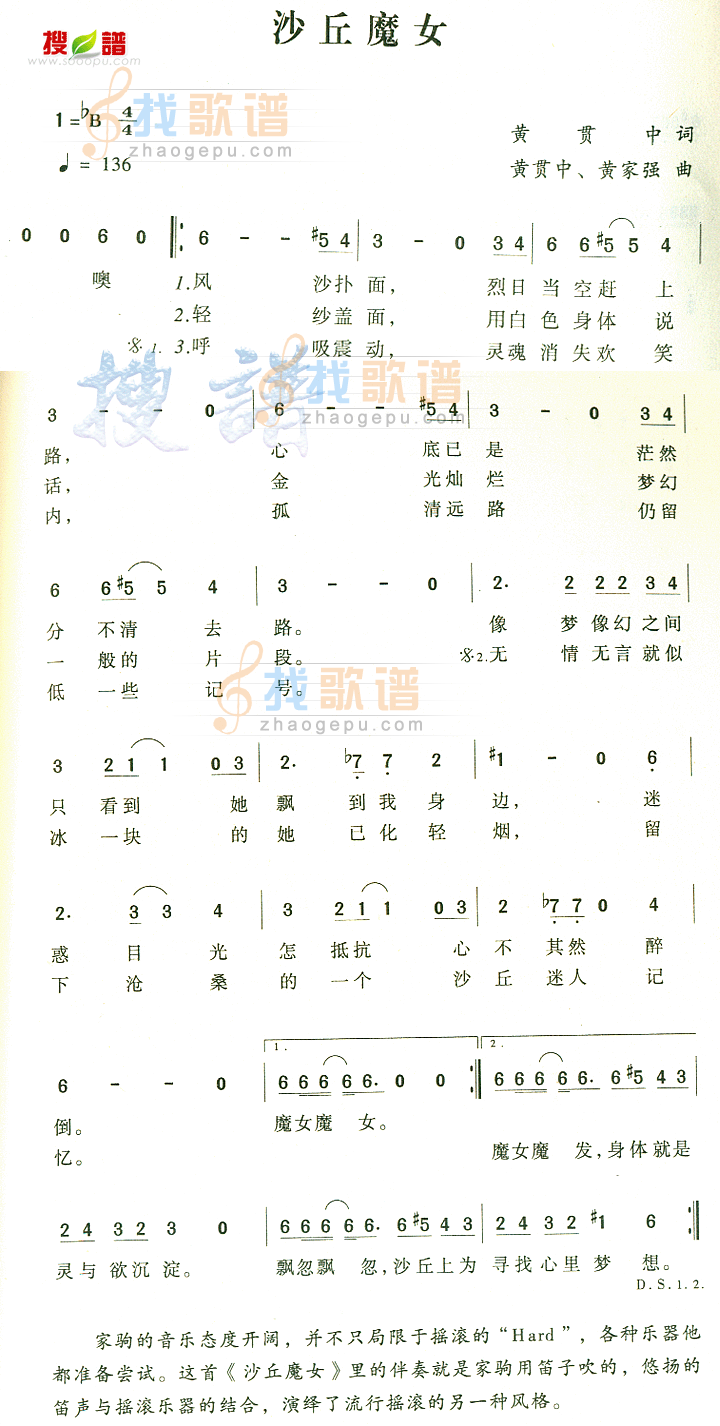 沙丘魔女
搜谱
www.sooopu.com
1=♭B 4/4
找歌谱
zhaogepu.com
黄贯中词
♩= 136
黄贯中、黄家强 曲
0 0 6 0 6 - - #5 4 3 - 0 3 4 6 6 #5 5 4
噢 1.风 沙扑面, 烈日当空赶上
2.轻 纱盖面, 用白色身体说
1. 3.呼 吸震动, 灵魂消失欢笑
搜譜
找歌谱
zhaogepu.com
3 - - 0 6 - - #5 4 3 - 0 3 4
路, 心 底已是 茫然
话, 金 光灿烂 梦幻
内, 孤 清远路 仍留
6 6 #5 5 4 3 - - 0 2. 2 2 2 3 4
分不清去路。 像 梦像幻之间
一般的片段。 2.无 情无言就似
低一些记号。
找歌谱
zhaogepu.com
3 2 1 1 0 3 2. ♭7 7 2 #1 - 0 6
只看到 她飘 到我身边, 迷
冰一块 的她 已化轻烟, 留
2. 3 3 4 3 2 1 1 0 3 2 ♭7 7 0 4
惑 目光怎抵抗 心不其然 醉
下 沧桑的一个 沙丘迷人 记
1. 2.
6 - - 0 6 6 6 6 6. 0 0 6 6 6 6 6. 6 #5 4 3
倒。 魔女魔 女。
忆。 魔女魔 发,身体就是
2 4 3 2 3 0 6 6 6 6 6. 6 #5 4 3 2 4 3 2 #1 6
灵与欲沉淀。 飘忽飘 忽,沙丘上为寻找心里梦 想。
D.S.1.2.
家驹的音乐态度开阔，并不只局限于摇滚的“Hard”，各种乐器他
都准备尝试。这首《沙丘魔女》里的伴奏就是家驹用笛子吹的，悠扬的
笛声与摇滚乐器的结合，演绎了流行摇滚的另一种风格。